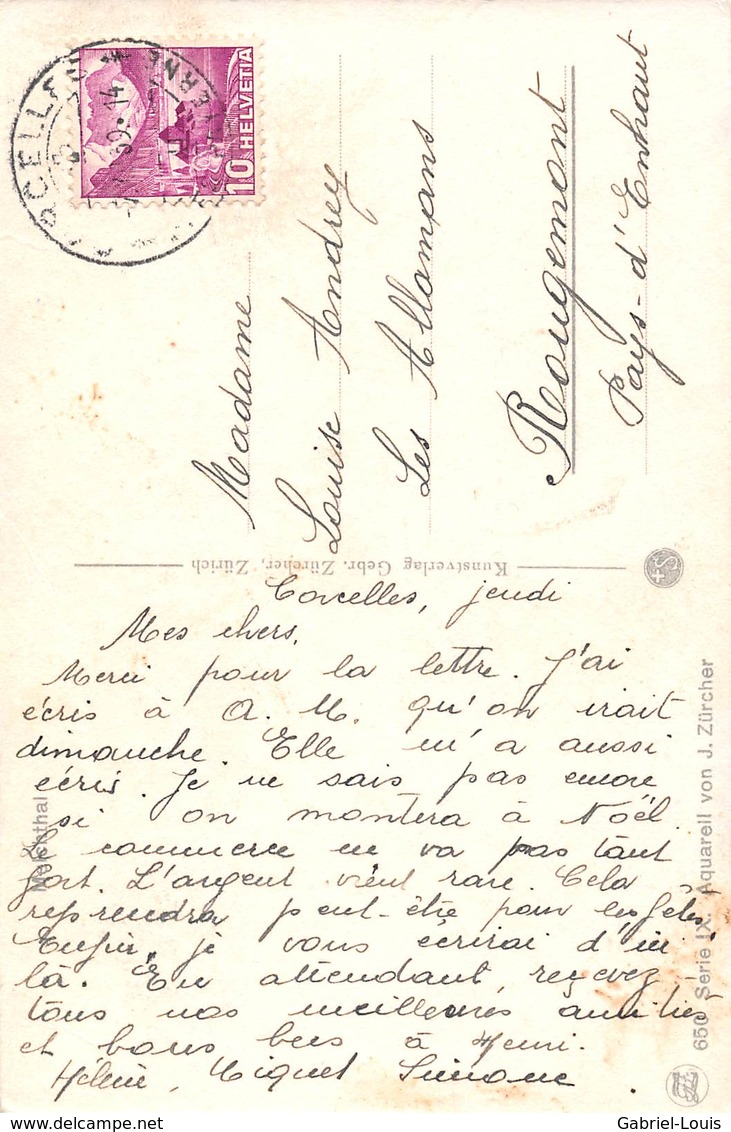 HELVETIA
10
Madame
Louise Andrey
Les Allamans
Rougemont
Pays-d'Enhaut
Kunstverlag Gebr. Zürcher, Zürich
Corcelles, jeudi
Mes chers,
Merci pour la lettre. J'ai
écris à A. M. qu'on irait
dimanche. Elle m'a aussi
écris. Je ne sais pas encore
si on montera à Noël.
Le commerce ne va pas tant
fort. L'argent vient rare. Cela
reprendra peut-être pour les fêtes.
Enfin, je vous écrirai d'ici
là. En attendant, recevez
tous nos meilleures amitiés
et bons becs à Henri.
Hélène, Simone
Melchthal
650 Serie IX. Aquarell von J. Zürcher
Gabriel-Louis